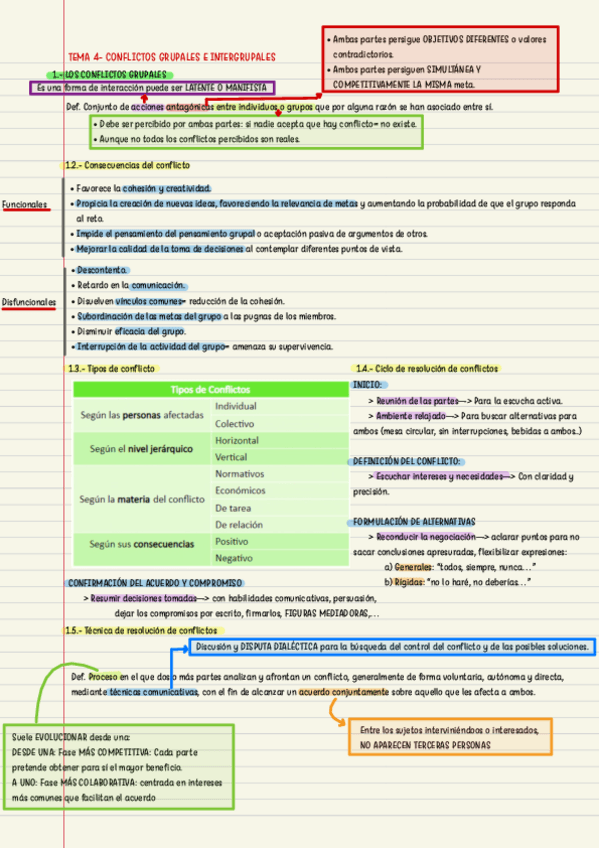 • Ambas partes persigue OBJETIVOS DIFERENTES o valores
contradictorios.
• Ambas partes persiguen SIMULTÁNEA Y
COMPETITIVAMENTE LA MISMA meta.
TEMA 4- CONFLICTOS GRUPALES E INTERGRUPALES
1.- LOS CONFLICTOS GRUPALES
Es una forma de interacción puede ser LATENTE O MANIFISTA
Def. Conjunto de acciones antagónicas entre individuos o grupos que por alguna razón se han asociado entre sí.
• Debe ser percibido por ambas partes: si nadie acepta que hay conflicto= no existe.
• Aunque no todos los conflictos percibidos son reales.
1.2.- Consecuencias del conflicto
Funcionales
• Favorece la cohesión y creatividad.
• Propicia la creación de nuevas ideas, favoreciendo la relevancia de metas y aumentando la probabilidad de que el grupo responda
al reto.
• Impide el pensamiento del pensamiento grupal o aceptación pasiva de argumentos de otros.
• Mejorar la calidad de la toma de decisiones al contemplar diferentes puntos de vista.
Disfuncionales
• Descontento.
• Retardo en la comunicación.
• Disuelven vínculos comunes= reducción de la cohesión.
• Subordinación de las metas del grupo a las pugnas de los miembros.
• Disminuir eficacia del grupo.
• Interrupción de la actividad del grupo= amenaza su supervivencia.
1.3.- Tipos de conflicto
Tipos de Conflictos
Según las personas afectadas
Individual
Colectivo
Según el nivel jerárquico
Horizontal
Vertical
Según la materia del conflicto
Normativos
Económicos
De tarea
De relación
Según sus consecuencias
Positivo
Negativo
1.4.- Ciclo de resolución de conflictos
INICIO:
> Reunión de las partes—> Para la escucha activa.
> Ambiente relajado—> Para buscar alternativas para
ambos (mesa circular, sin interrupciones, bebidas a ambos..)
DEFINICIÓN DEL CONFLICTO:
> Escuchar intereses y necesidades—> Con claridad y
precisión.
FORMULACIÓN DE ALTERNATIVAS
> Reconducir la negociación—> aclarar puntos para no
sacar conclusiones apresuradas, flexibilizar expresiones:
a) Generales: “todos, siempre, nunca...”
b) Rígidas: “no lo haré, no deberías...”
CONFIRMACIÓN DEL ACUERDO Y COMPROMISO
> Resumir decisiones tomadas—> con habilidades comunicativas, persuasión,
dejar los compromisos por escrito, firmarlos, FIGURAS MEDIADORAS,...
1.5.- Técnica de resolución de conflictos
Discusión y DISPUTA DIALÉCTICA para la búsqueda del control del conflicto y de las posibles soluciones.
Def. Proceso en el que dos o más partes analizan y afrontan un conflicto, generalmente de forma voluntaria, autónoma y directa,
mediante técnicas comunicativas, con el fin de alcanzar un acuerdo conjuntamente sobre aquello que les afecta a ambos.
Suele EVOLUCIONAR desde una:
DESDE UNA: Fase MÁS COMPETITIVA: Cada parte
pretende obtener para sí el mayor beneficio.
A UNO: Fase MÁS COLABORATIVA: centrada en intereses
más comunes que facilitan el acuerdo
Entre los sujetos interviniéndoos o interesados,
NO APARECEN TERCERAS PERSONAS